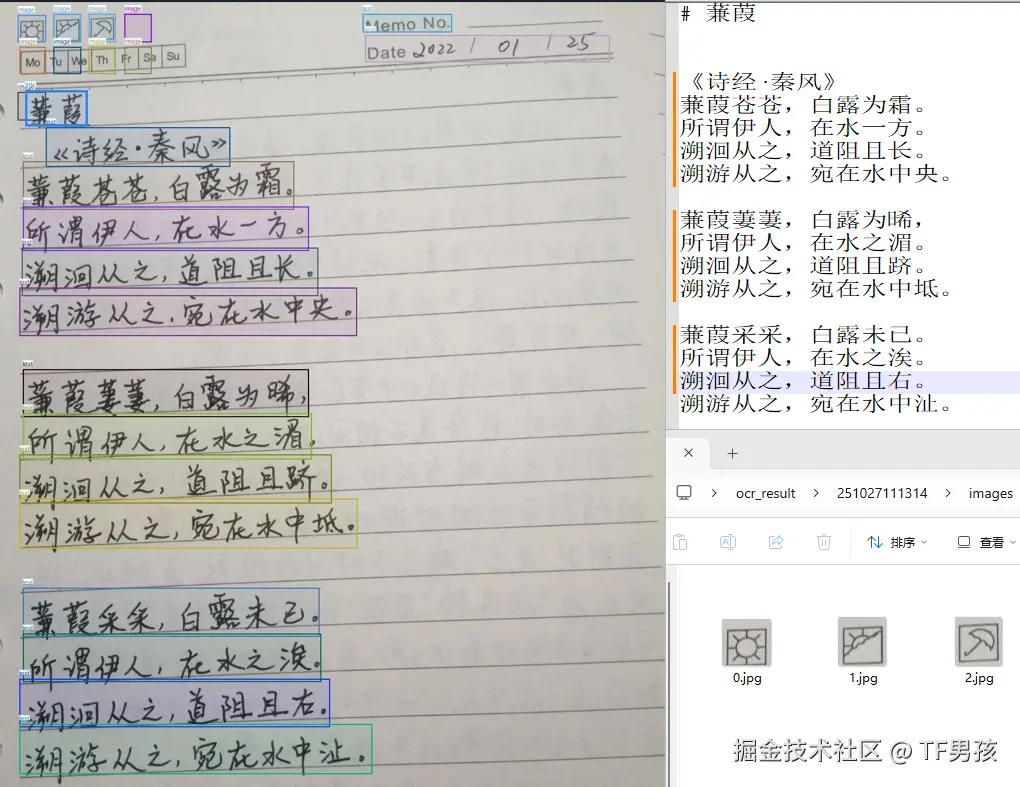 Memo No.
Mo Tu We Th Fr Sa Su
Date 2022 / 01 / 25
蒹葭
《诗经·秦风》
蒹葭苍苍，白露为霜。
所谓伊人，在水一方。
溯洄从之，道阻且长。
溯游从之，宛在水中央。
蒹葭萋萋，白露为晞，
所谓伊人，在水之湄。
溯洄从之，道阻且跻。
溯游从之，宛在水中坻。
蒹葭采采，白露未已。
所谓伊人，在水之涘。
溯洄从之，道阻且右。
溯游从之，宛在水中沚。
# 蒹葭
《诗经·秦风》
蒹葭苍苍，白露为霜。
所谓伊人，在水一方。
溯洄从之，道阻且长。
溯游从之，宛在水中央。
蒹葭萋萋，白露为晞，
所谓伊人，在水之湄。
溯洄从之，道阻且跻。
溯游从之，宛在水中坻。
蒹葭采采，白露未已。
所谓伊人，在水之涘。
溯洄从之，道阻且右。
溯游从之，宛在水中沚。
ocr_result > 251027111314 > images
排序 查看
0.jpg 1.jpg 2.jpg
掘金技术社区 @ TF男孩